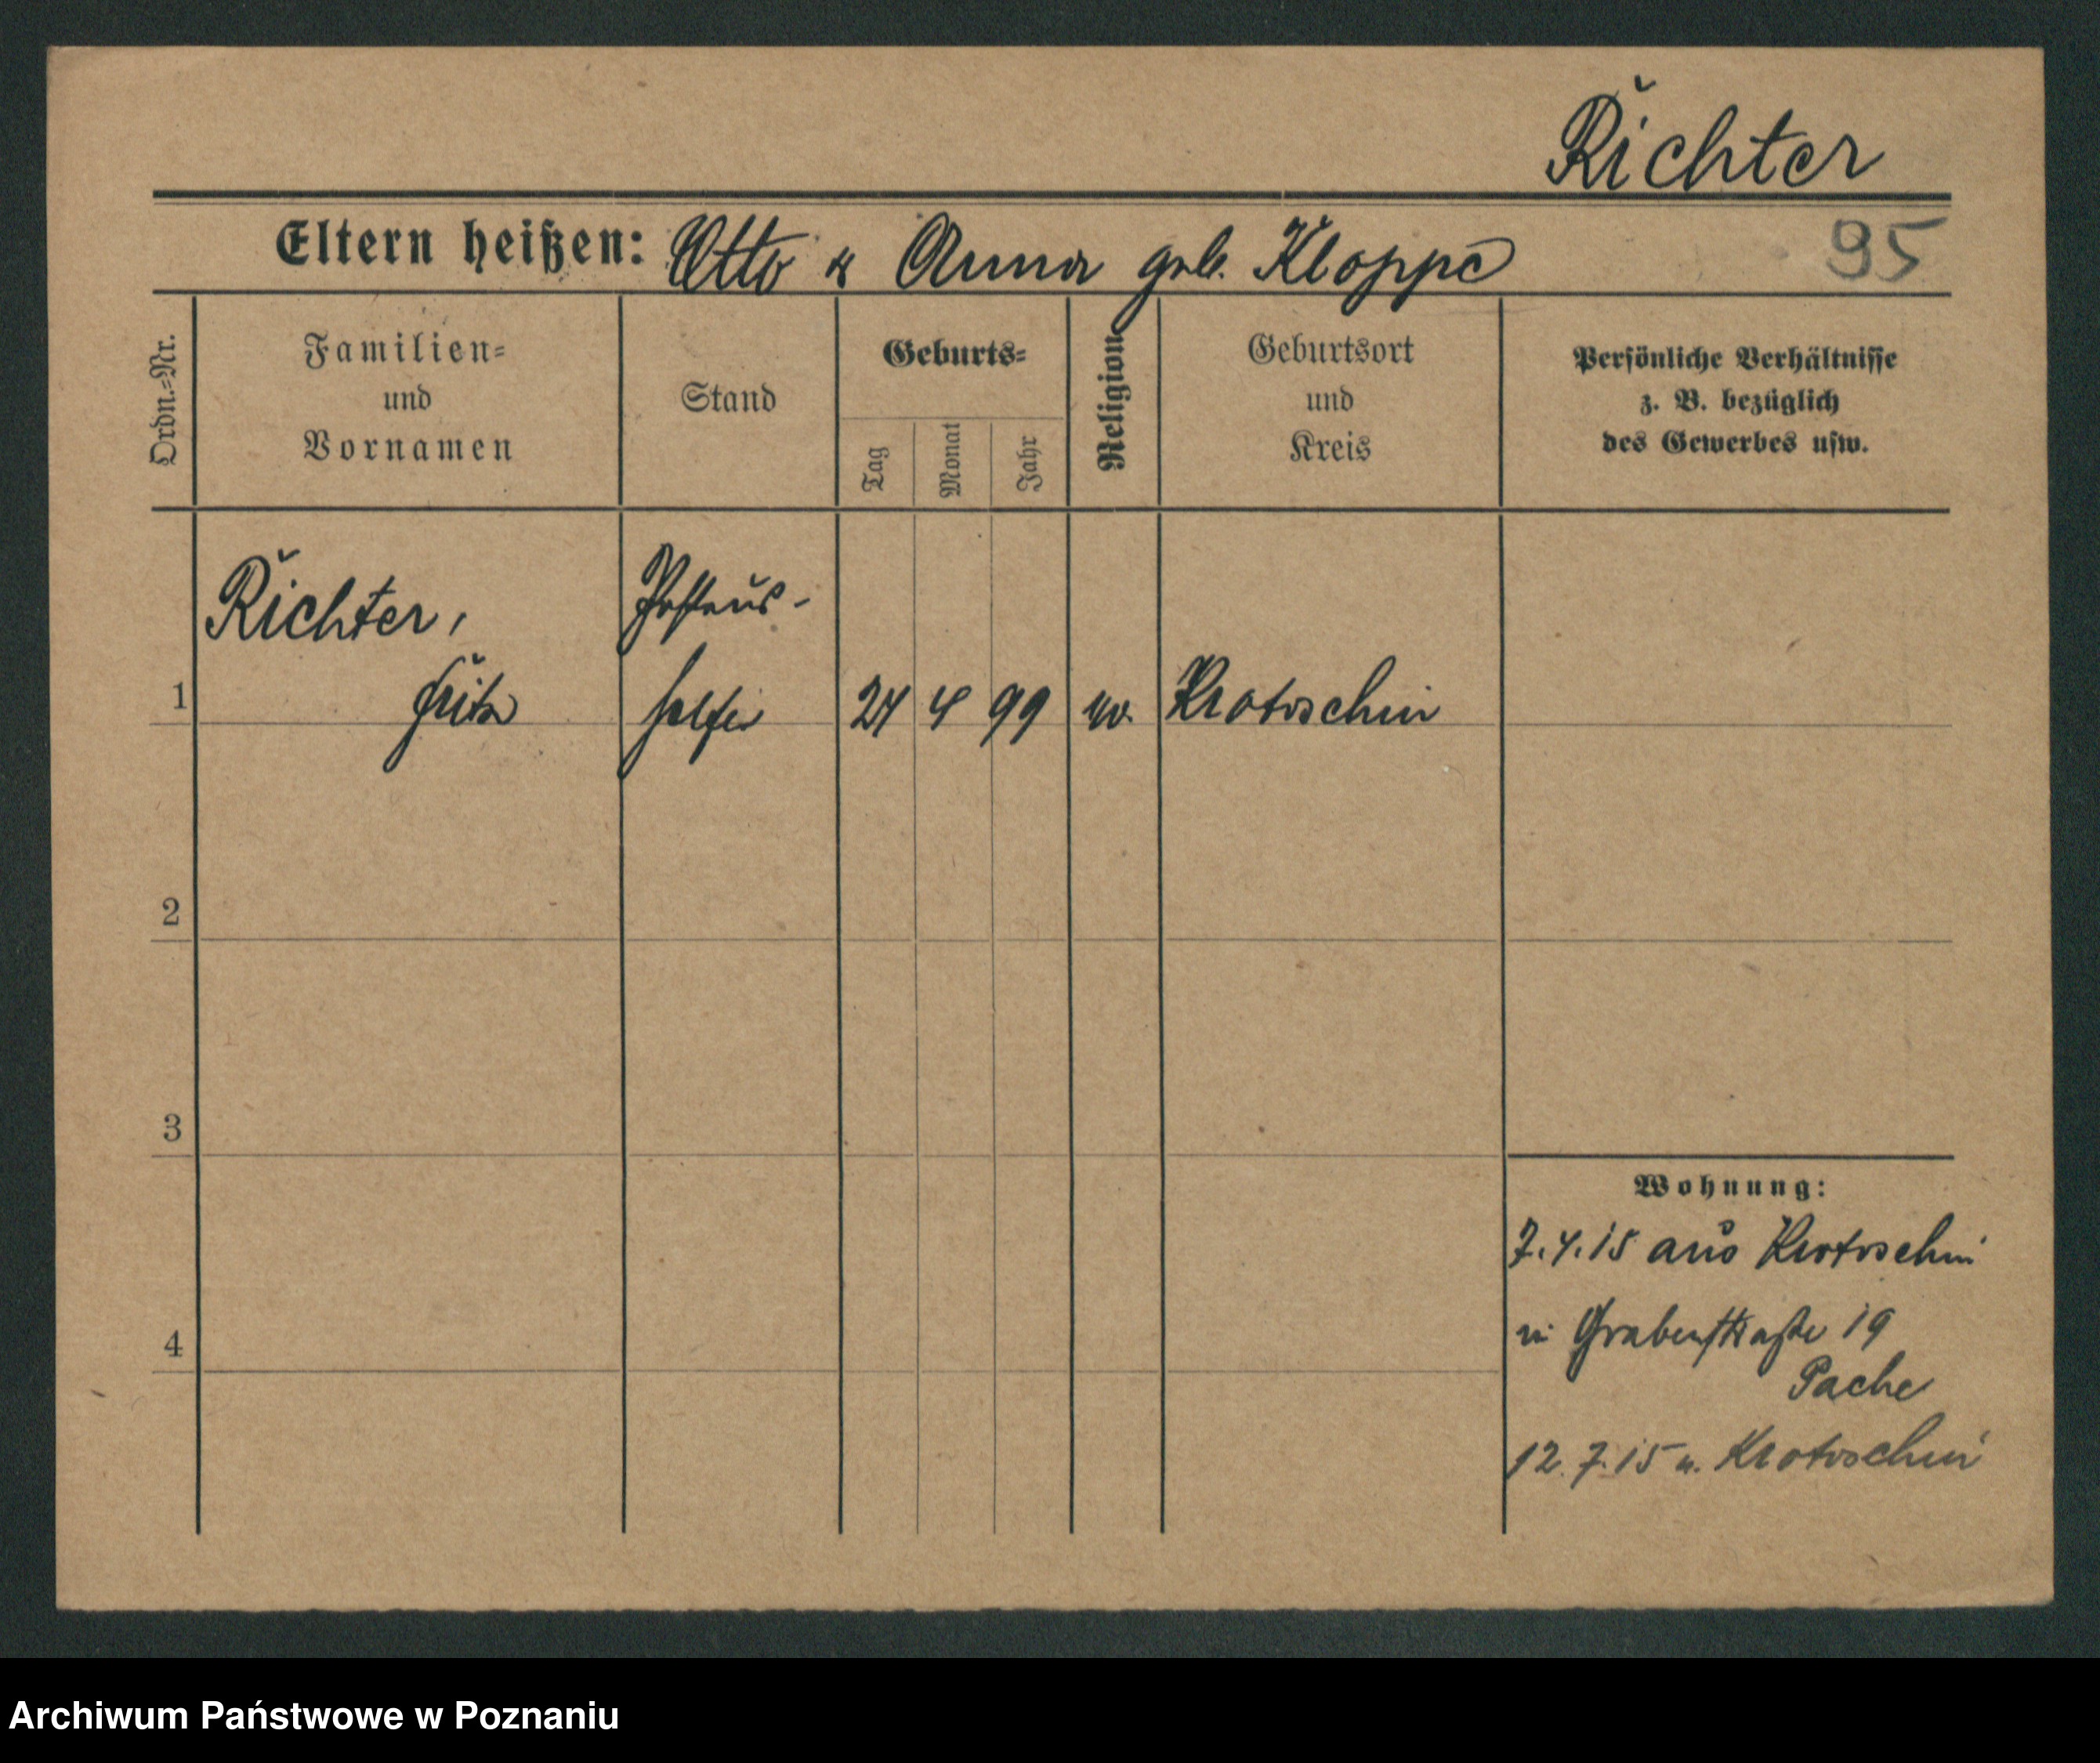 Richter
Eltern heißen: Otto u Anna geb. Kloppe
95
Ordn.=Nr.
Familien=
und
Vornamen
Stand
Geburts=
Tag
Monat
Jahr
Religion
Geburtsort
und
Kreis
Persönliche Verhältnisse
z. B. bezüglich
des Gewerbes usw.
Richter,
Postaus-
1 Fritz helfer 24 4 99 ev. Krotoschin
2
3
4
Wohnung:
7.4.15 aus Krotoschin
in Grabenstraße 19
Pache
12.7.15 n. Krotoschin
Archiwum Państwowe w Poznaniu